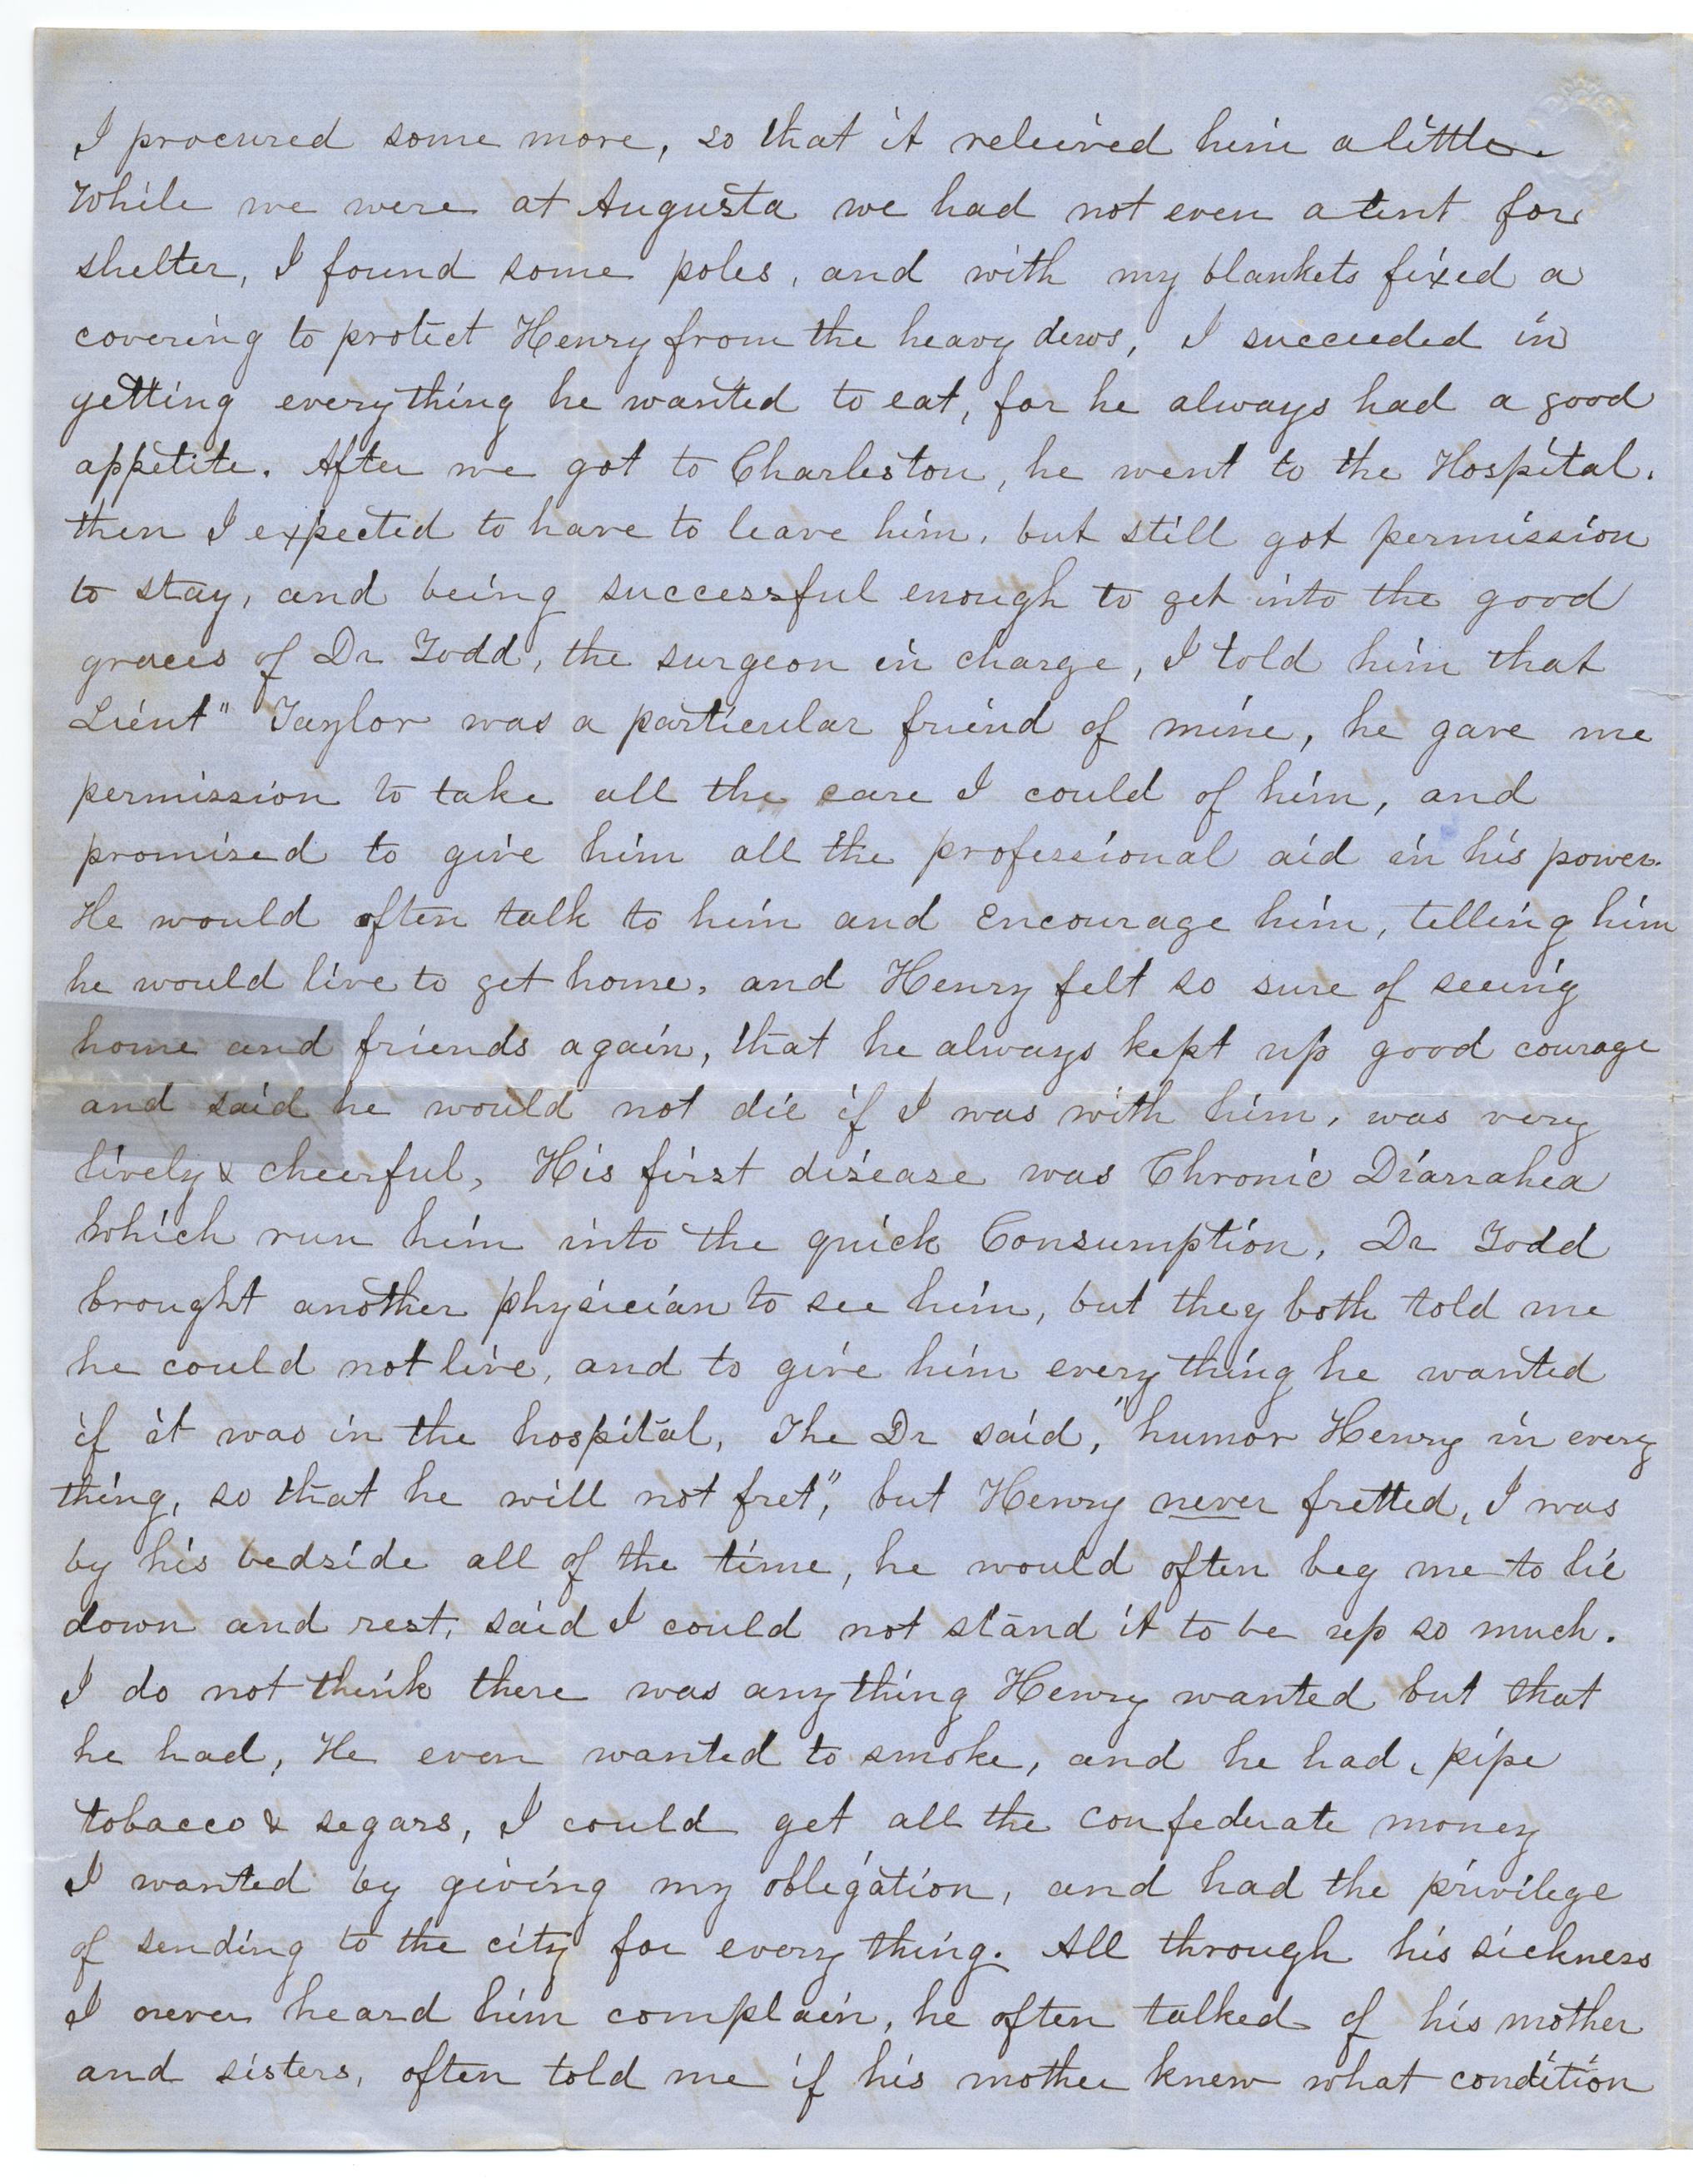 I procured some more, so that it releived him a little.
While we were at Augusta we had not even a tent for
shelter, I found some poles, and with my blankets fixed a
covering to protect Henry from the heavy dews, I succeeded in
getting everything he wanted to eat, for he always had a good
appetite. After we got to Charleston, he went to the Hospital.
then I expected to have to leave him, but still got permission
to stay, and being successful enough to get into the good
graces of Dr Todd, the surgeon in charge, I told him that
Lieut" Taylor was a particular friend of mine, he gave me
permission to take all the care I could of him, and
promised to give him all the professional aid in his power.
He would often talk to him and encourage him, telling him
he would live to get home, and Henry felt so sure of seeing
home and friends again, that he always kept up good courage
and said he would not die if I was with him, was very
lively & cheerful, His first disease was Chronic Diarrahea
which run him into the quick Consumption, Dr Todd
brought another physician to see him, but they both told me
he could not live, and to give him every thing he wanted
if it was in the hospital, The Dr said, "humor Henry in every
thing, so that he will not fret", but Henry never fretted, I was
by his bedside all of the time, he would often beg me to lie
down and rest, said I could not stand it to be up so much.
I do not think there was any thing Henry wanted but that
he had, He even wanted to smoke, and he had, pipe
tobacco & segars, I could get all the confederate money
I wanted by giving my obligation, and had the privilege
of sending to the city for every thing. All through his sickness
I never heard him complain, he often talked of his mother
and sisters, often told me if his mother knew what condition